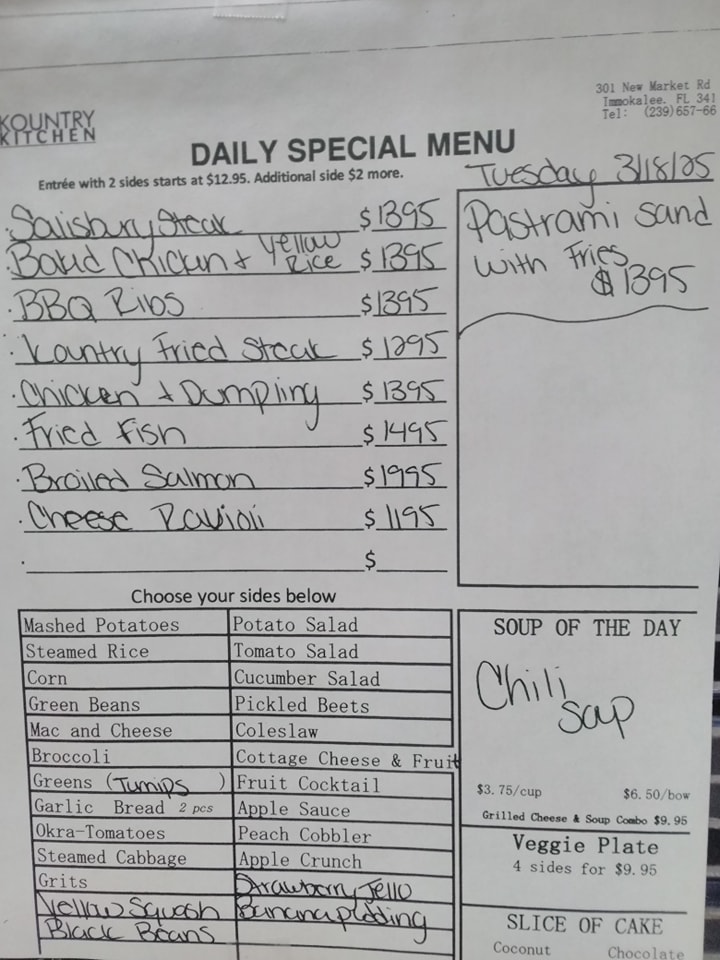 KOUNTRY
KITCHEN
301 New Market Rd
Immokalee, FL 341
Tel: (239)657-66
DAILY SPECIAL MENU
Entrée with 2 sides starts at $12.95. Additional side $2 more.
Tuesday 3/18/25
Salisbury Steak $1395
Bakd Chicken + Yellow Rice $1395
BBQ Ribs $1395
Kountry Fried Steak $1295
Chicken + Dumpling $1395
Fried Fish $1495
Broiled Salmon $1995
Cheese Ravioli $1195
$
Pastrami Sand
with Fries
$1395
Choose your sides below
Mashed Potatoes Potato Salad
Steamed Rice Tomato Salad
Corn Cucumber Salad
Green Beans Pickled Beets
Mac and Cheese Coleslaw
Broccoli Cottage Cheese & Fruit
Greens (Turnips) Fruit Cocktail
Garlic Bread 2 pcs Apple Sauce
Okra-Tomatoes Peach Cobbler
Steamed Cabbage Apple Crunch
Grits Strawberry Jello
Yellow Squash Banana pudding
Black Beans
SOUP OF THE DAY
Chili
Soup
$3.75/cup $6.50/bow
Grilled Cheese & Soup Combo $9.95
Veggie Plate
4 sides for $9.95
SLICE OF CAKE
Coconut Chocolate